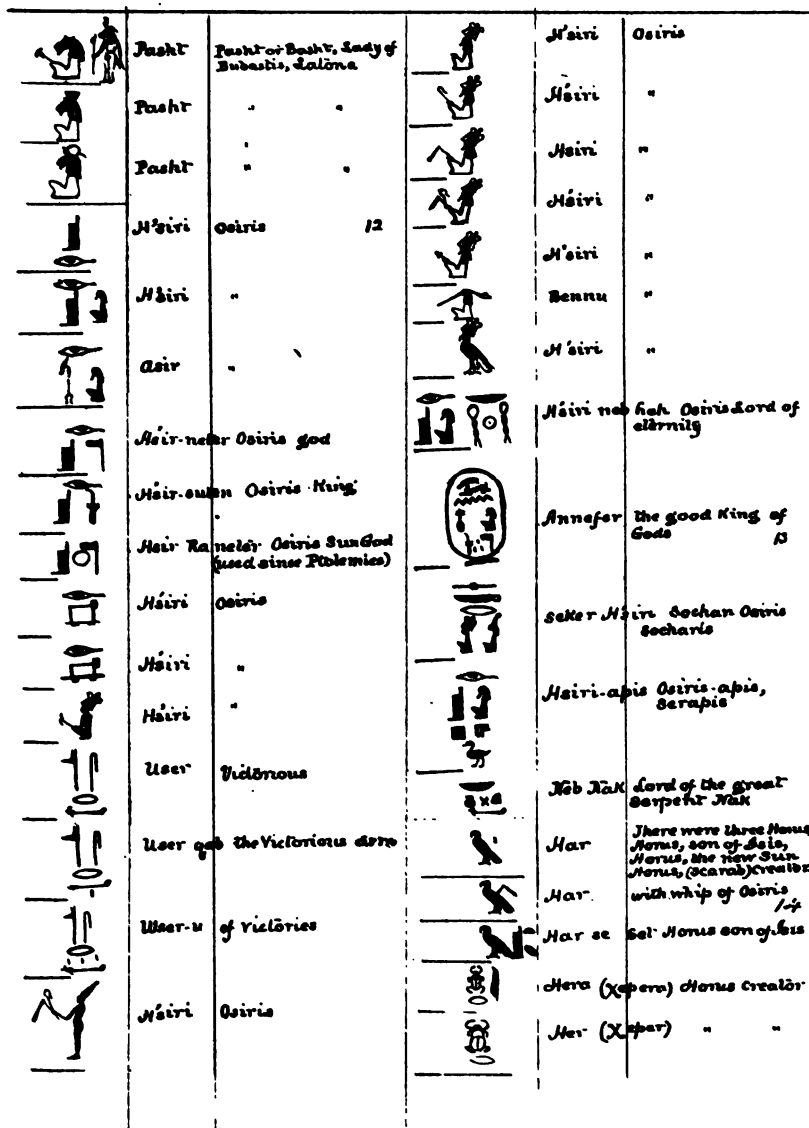 Pasht Pasht or Basht, Lady of
Bubastis, Latona
Pasht " "
Pasht " "
H'siri Osiris 12
H'siri "
Asir "
Hsir-neter Osiris god
Hsir-suten Osiris-King
Hsir Ra neter Osiris Sun God
(used since Ptolemies)
H'siri Osiris
H'siri "
H'siri "
User Victorious
User qeb the Victorious arm
User-u of Victories
H'siri Osiris
H'siri Osiris
H'siri "
Hsiri "
H'siri "
H'siri "
Bennu "
H'siri "
H'siri neb heh Osiris Lord of
eternity
Annefer the good King of
Gods 13
Seker Hsiri Sochan Osiris
Socharis
Hsiri-apis Osiris-apis,
Serapis
Neb Nak Lord of the great
Serpent Nak
Har There were three Horus,
Horus, son of Isis,
Horus, the new Sun
Horus, (Scarab) Creator
Har. with whip of Osiris
14
Har se Set Horus son of Isis
Hera (Xepera) Horus Creator
Her (Xeper) " "